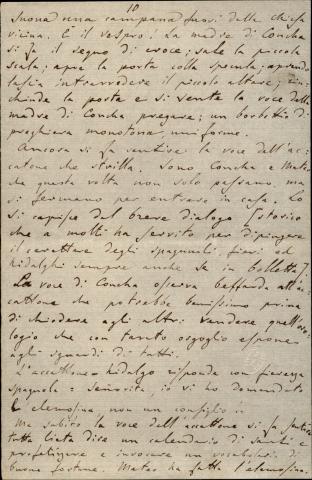 10
Suona una campana fuori dalla chiesa
vicina. È il vespro. La madre di Concha
si fa il segno di croce; sale la piccola
scala; apre la porta colla spinta; aprendo
lascia intravvedere il piccolo altare; rin-
chiude la porta e si sente la voce della
madre di Concha pregare; un borbottio di
preghiera monotona, uniforme.
Ancora si fa sentire la voce dell'ac-
catone che strilla. Sono Concha e Mateo
che questa volta non solo passano, ma
si fermano per entrare in casa. Lo
si capisce dal breve dialogo [storico
che a molti ha servito per dipingere
il carattere degli spagnuoli, fieri ed
hidalghi sempre anche se in bolletta].
La voce di Concha osserva beffarda all'ac-
cattone che potrebbe benissimo prima
di chiedere agli altri vendere quell'oro-
logio che con tanto orgoglio espone
agli sguardi di tutti.
L'accattone hidalgo risponde con fierezza
spagnola = senorita, io vi ho domandato
l'elemosina, non un consiglio =
Ma subito la voce dell'accattone si fa sentire
tutta lieta dire un calendario di santi e
profetizzare e invocare un vocabolario di
buone fortune. Mateo ha fatto l'elemosina.